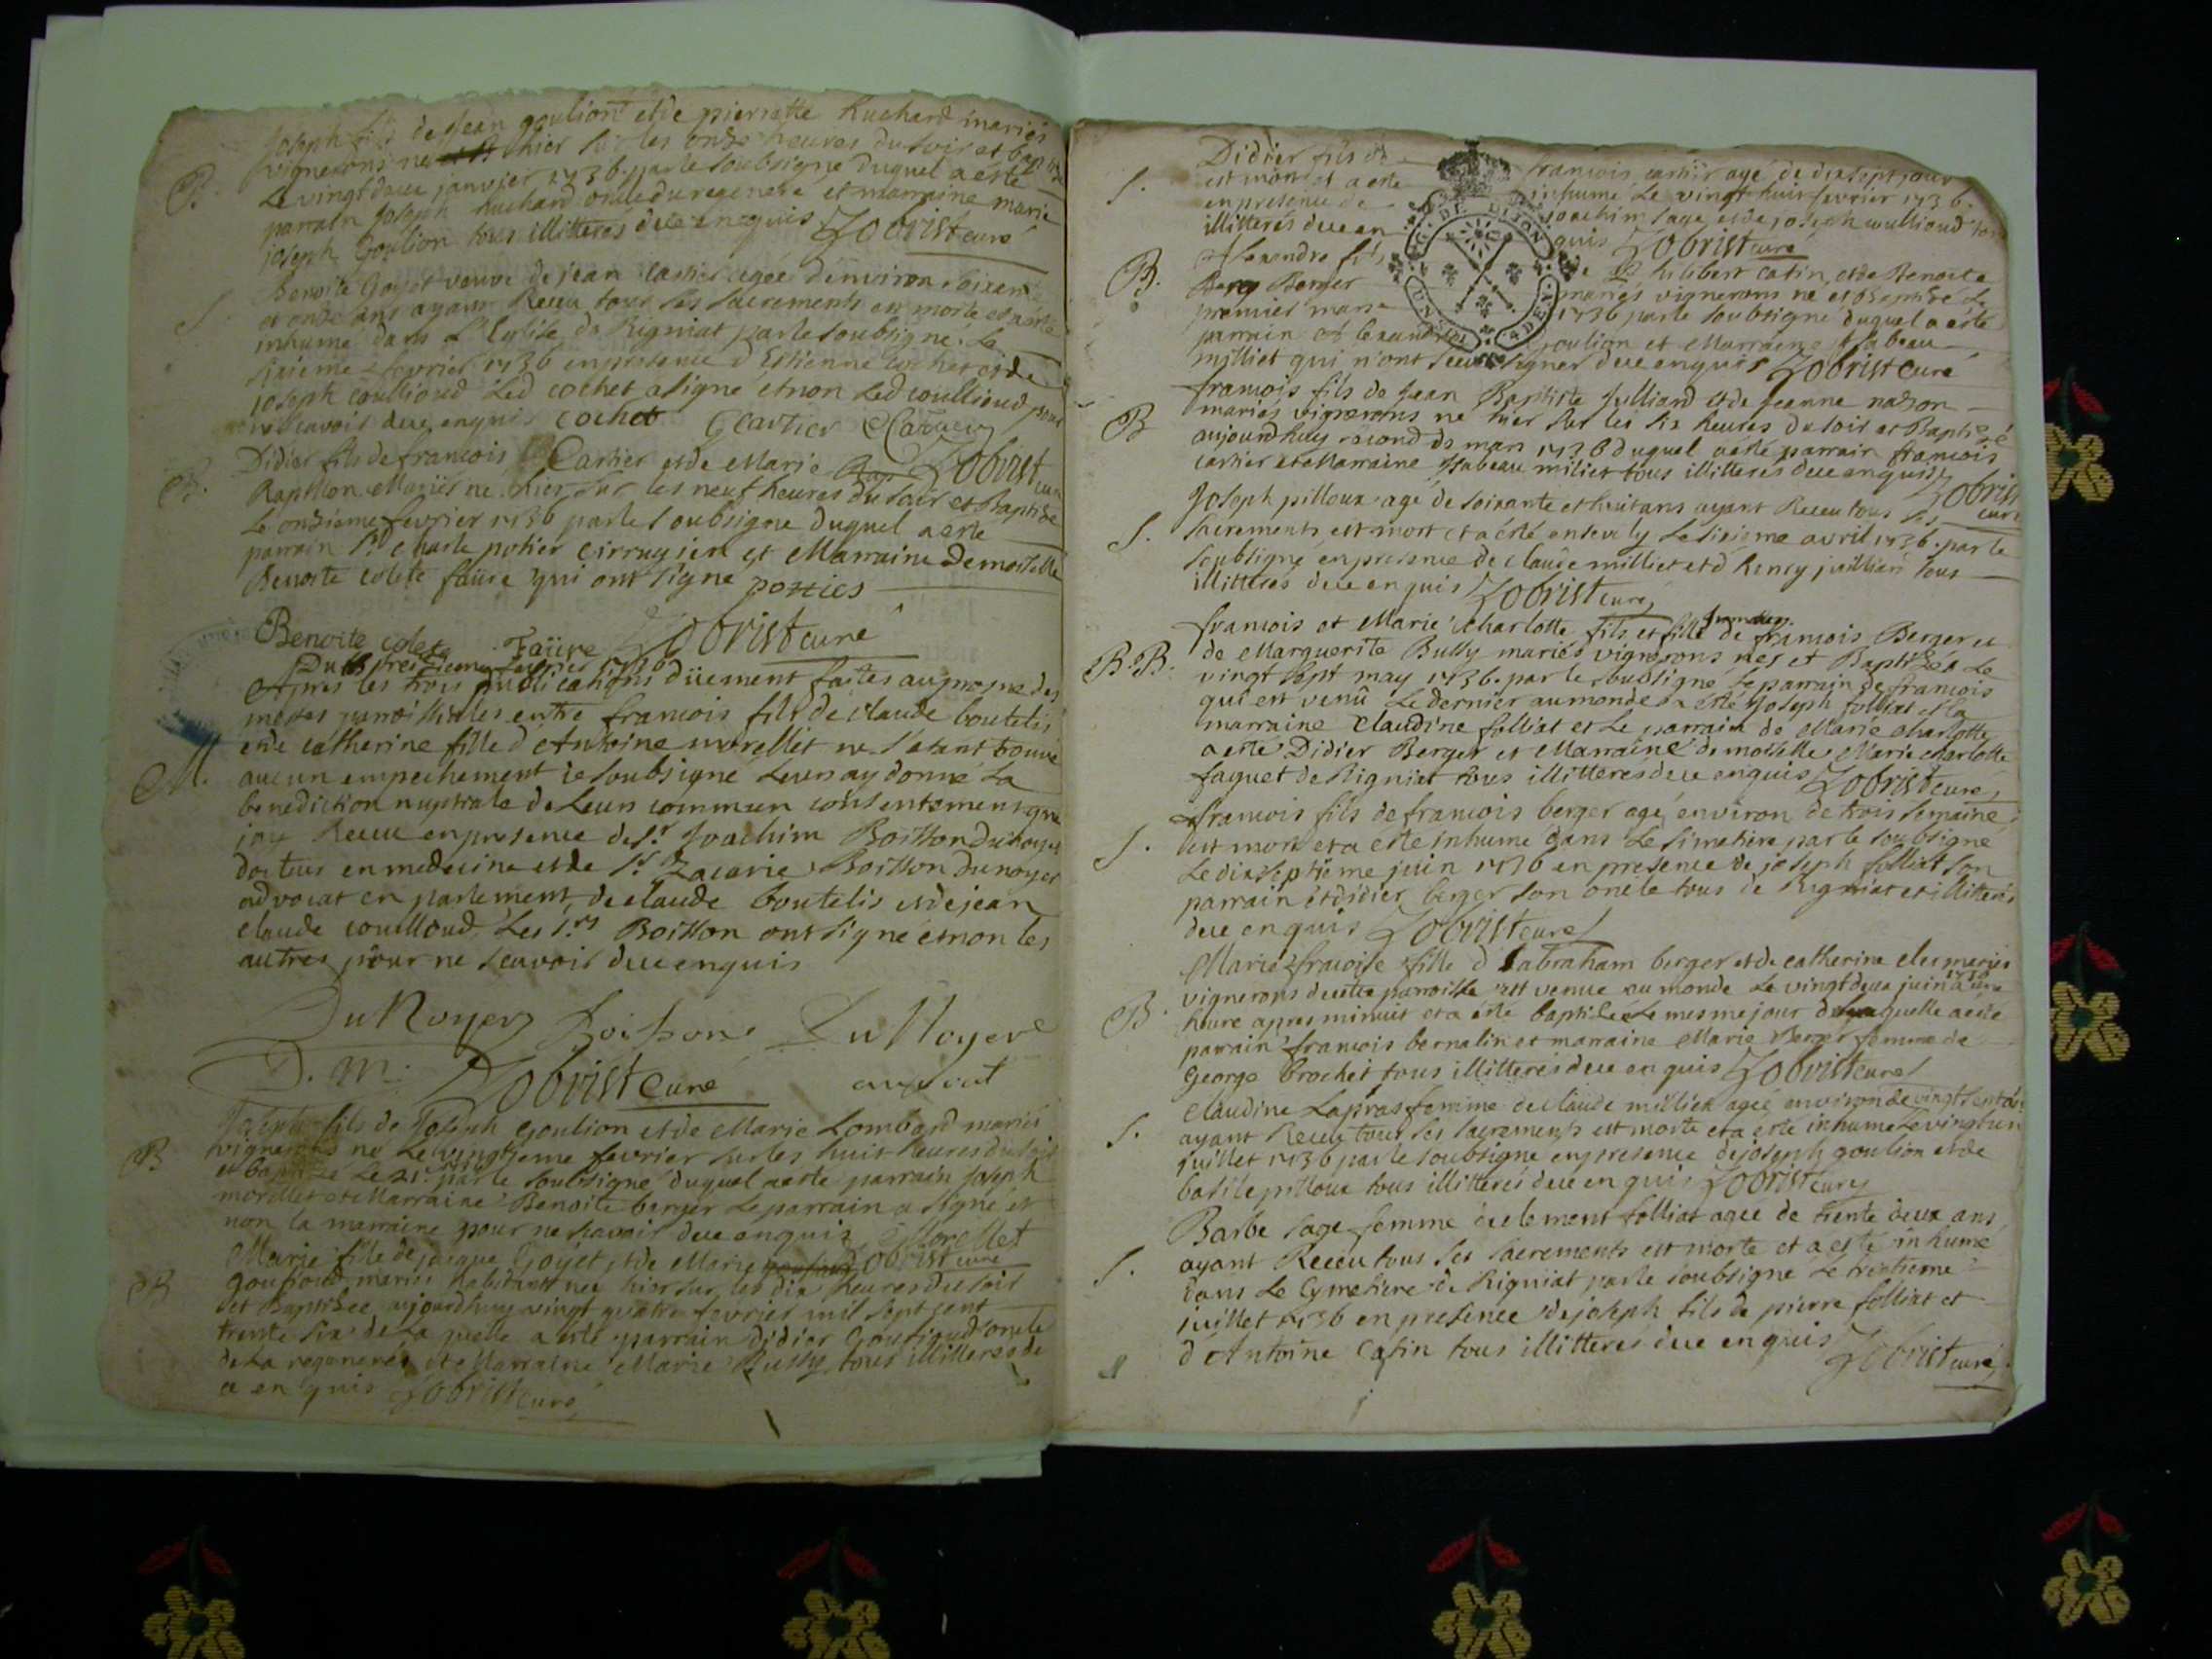 Joseph fils de Jean goulion et de pierrette huchard mariés
vignerons né hier sur les onze heures du soir et baptizé
B. Le vingt deux janvier 1736. par le soubsigné duquel a esté
parrain Joseph huchard oncle du regeneré et marraine marie
joseph Goulion tous illitterés de ce enquis Zobrist curé
Benoite Goyet veuve de jean cartier agée d'environ soixante
S. et onze ans ayant Receu tous ses sacrements est morte et a esté
inhumé dans L'Eglise de Rigniat par le soubsigné. Le
sixieme fevrier 1736 en presence d'Estienne cochet et de
joseph coullioud Led cochet a signé et non Led coullioud pour
ne scavoir de ce enquis cochet Cartier
Didier fils de francois Cartier et de Marie Zobrist curé
B. Rapillon Mariés né hier sur les neuf heures du soir et Baptizé
Le onzieme fevrier 1736 par le soubsigné duquel a esté
parrain Sr. Charle potier cirrugien et Marraine Demoiselle
Benoite colete faüre qui ont signé pottier
Benoite colete Faüre Zobrist curé
Du treizieme fevrier 1736
Apres les trois publications düement faites au prosne des
messes parroissiales entre francois fils de claude boutelis
et de catherine fille d'Antoine morellet ne s'etant trouvé
M. aucun empechement je soubsigné Leur ay donné La
benediction nuptiale de Leur commun consentement que
jay Receu en presence de Sr. Joachim Boisson Dunoyer
docteur en medecine et de Sr. Zacarie Boisson Dunoyer
advocat en parlement, de claude boutelis et de jean
claude coullioud, Les Srs. Boisson ont signé et non les
autres pour ne scavoir de ce enquis
DuNoyer Boisson DuNoyer
D. M. Zobrist curé avocat
Joseph fils de Joseph goulion et de Marie Lombard mariés
B vignerons né Le vingtieme fevrier sur les huit heures du soir
et baptizé Le 21e. par le soubsigné duquel a esté parrain Joseph
morellet et Marraine Benoite berger Le parrain a signé et
non la marraine pour ne scavoir de ce enquis Morellet
Marie fille de jacque Goyet et de Marie Zobrist curé
B mariés habitants née hier sur les dix heures du soir
et Baptizée aujourdhuy vingt quatre fevrier mil sept cent
trente six de La quelle a esté parrain didier oncle
de La regenerée et Marraine Marie Bussy tous illitterés de
ce enquis Zobrist curé
Didier fils de francois cartier agé de dixsept jours
S. est mort et a esté inhumé Le vingt huit fevrier 1736.
en presence de joachim sage et de joseph coullioud tous
illitterés de ce enquis Zobrist curé
G. DE DIJON
UN SOL
B. Alexandre fils de philibert catin et de Benoite
Berger mariés vignerons né et Baptizé Le
premier mars 1736 par le soubsigné duquel a esté
parrain Alexandre goulion et Marraine Isabeau
milliet qui n'ont sceu signer de ce enquis Zobrist curé
francois fils de Jean Baptiste Julliard et de Jeanne nason
B mariés vignerons né hier sur les six heures du soir et Baptizé
aujourdhuy second de mars 1736 duquel a esté parrain francois
cartier et Marraine Isabeau miliet tous illitteres de ce enquis Zobrist
Joseph pilloux agé de soixante et huit ans ayant Receu tous ses curé
S. sacrements est mort et a esté ensevely Le sixieme avril 1736. par le
soubsigné en presence de claude milliet et d'henry juilliard tous
illitterés de ce enquis Zobrist curé
jumeaux
francois et Marie Charlotte fils et fille de francois Berger et
B.B. de Marguerite Bussy mariés vignerons nés et Baptizés Le
vingt sept may 1736. par le soubsigné Le parrain de francois
qui est venû Le dernier au monde a esté Joseph folliat et la
marraine Claudine folliat et Le parrain de Marie Charlotte
a esté Didier Berger et Marraine demoiselle Marie charlotte
faguet de Rigniat tous illitterés de ce enquis Zobrist curé
francois fils de francois berger agé environ de trois semaines
S. est mort et a esté inhumé dans Le simetiere par le soubsigné
Le dixseptième juin 1736 en presence de joseph folliat son
parrain et didier berger son oncle tous de Rigniat et illitterés
de ce enquis Zobrist curé
Marie francoise fille d'abraham berger et de catherine clerc mariés
vignerons de cette parroisse est venue au monde Le vingt deux juin 1736 à une
B. heure apres minuit et a esté baptizée Le mesme jour de laquelle a esté
parrain francois bernalin et marraine Marie Berger femme de
George brochet tous illitterés de ce enquis Zobrist curé
Claudine Lapras femme de claude millien agée environ de vingt sept ans
S. ayant Receu tous ses sacrements est morte et a esté inhumé Le vingt un
juillet 1736 par le soubsigné en presence de joseph goulion et de
basile pilloux tous illitterés de ce enquis Zobrist curé
Barbe sage femme de clement folliat agée de trente deux ans
S. ayant Receu tous ses sacrements est morte et a esté inhumé
dans Le Cymetiere de Rigniat par le soubsigné Le trentieme
juillet 1736 en presence de joseph fils de pierre folliat et
d'Antoine Catin tous illitteres de ce enquis Zobrist curé